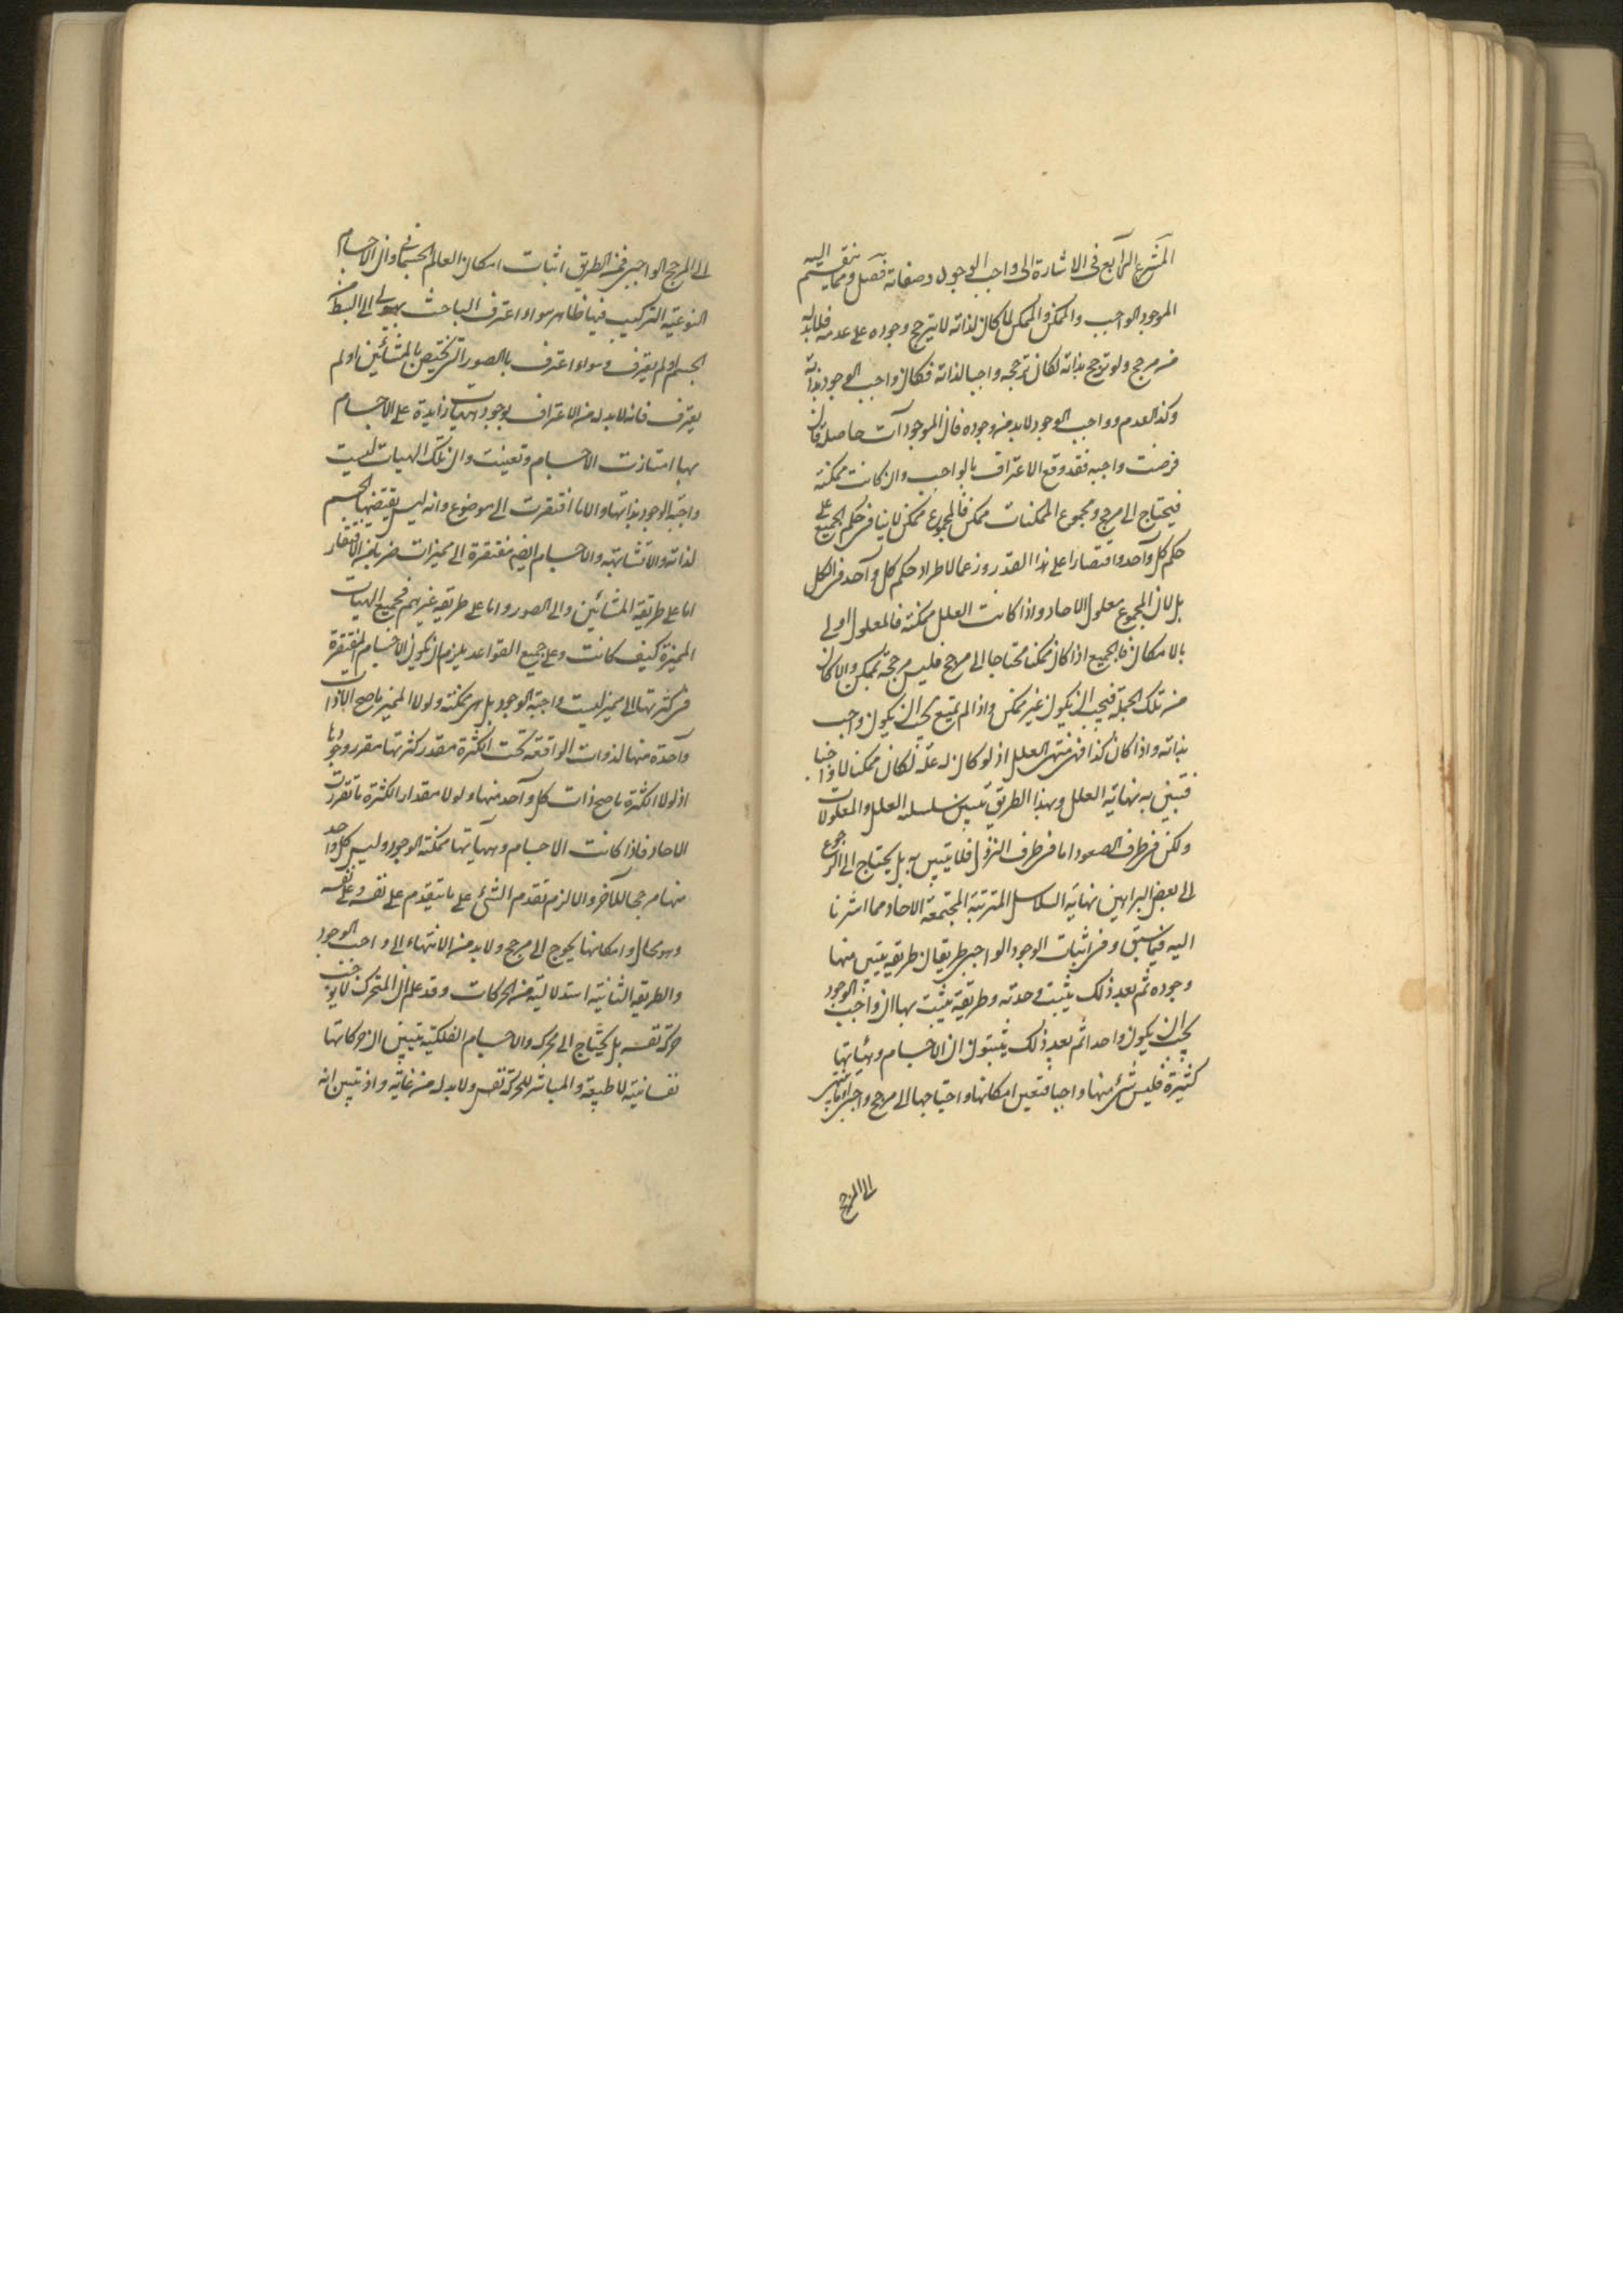 المشرع الرابع فى الاشارة الى واجب الوجود وصفاته فصل ومما ينقسم اليه
الموجود الواجب والممكن والممكن لما كان لذاته لا يترجح وجوده على عدمه فلا بد له
من مرجح ولو ترجح بذاته لكان ترجحه واجبا لذاته فكان واجب الوجود بذاته
وكذا العدم وواجب الوجود لا بد من وجوده فان الموجودات حاصلة فان
فرضت واجبة فقد وقع الاعتراف بالواجب وان كانت ممكنة
فيحتاج الى مرجح ومجموع الممكنات ممكن فالمجموع ممكن لا بناء فى حكم الجميع على
حكم كل واحد واقتصارا على هذا القدر وزعما لاطراد حكم كل واحد فى الكل
بل لان المجموع معلول الاحاد واذا كانت العلل ممكنة فالمعلول اولى
بالامكان فالجميع اذا كان ممكنا محتاجا الى مرجح فليس مرجحه بممكن والا كان
من تلك الجملة فيجب ان يكون غير ممكن واذا لم يمتنع يجب ان يكون واجب
بذاته واذا كان كذا فهو منتهى العلل اذ لو كان له علة لكان ممكنا لا واجبا
فتبين به نهاية العلل وبهذا الطريق تبين سلسلة العلل والمعلولات
ولكن فى طرف الصعود اما فى طرف النزول فلا يتبين به بل يحتاج الى الرجوع
الى بعض البراهين نهاية السلاسل المترتبة المجتمعة الاحاد مما اشرنا
اليه فيما سبق وفى اثبات الوجود الواجبى طريقان طريقة يتبين منها
وجوده ثم بعد ذلك يثبت وحدته وطريقة يثبت بها ان واجب الوجود
يجب ان يكون واحدا ثم بعد ذلك يبتنون ان الاجسام وهيئاتها
كثيرة فليس شئ منها واجبا فتعين امكانها واحتياجها الى مرجح واجبى
الى المرجح
الى المرجح الواجبى فمن الطريق اثبات امكان العالم الجسمانى وان الاجسام
النوعية التركيب فيها ظاهر سواء اعترف الباحث بهيولى
الجسم او لم يعترف وسواء اعترف بالصور التى تختص بالمشائين او لم
يعترف فانه لا بد له من الاعتراف بوجود هيات زايدة على الاجسام
بها امتازت الاجسام وتعينت وان تلك الهيات ليست
واجبة الوجود بذاتها والا ما افتقرت الى موضوع وانه ليس يقتضيها الجسم
لذاته والا تشابهت والاجسام ايضا مفتقرة الى مميزات ضربا من الافتقار
اما على طريقة المشائين والى الصور واما على طريقة غيرهم فجميع الهيات
المميزة كيف كانت وعلى جميع القواعد يلزم ان يكون الاجسام المفتقرة
فى كثرتها الى مميز ليست واجبة الوجود بل هى ممكنة ولولا المميز ما صح
واحدة منها لذوات الواقعة تحت الكثرة مقدر كثرتها مقرر وجودها
اذ لولا الكثرة ما صح ذات كل واحد منها ولولا مقدار الكثرة ما تقررت
الاحاد فاذا كانت الاجسام وهيآتها ممكنة الوجود وليس كل واحد
منها مرجحا للآخر والا لزم تقدم الشئ على ما يتقدم على نفسه وعلى نفسه
وهو محال وامكانها يحوج الى مرجح ولا بد من الانتهاء الى واجب الوجود
والطريقة الثانية استدلالية من الحركات وقد علم ان المتحرك لا يوجب
حركة نفسه بل يحتاج الى محرك والاجسام الفلكية تبين ان حركاتها
نفسانية لا طبيعة والمباشر للحركة نفس ولا بد له من غاية واذ تبين انه